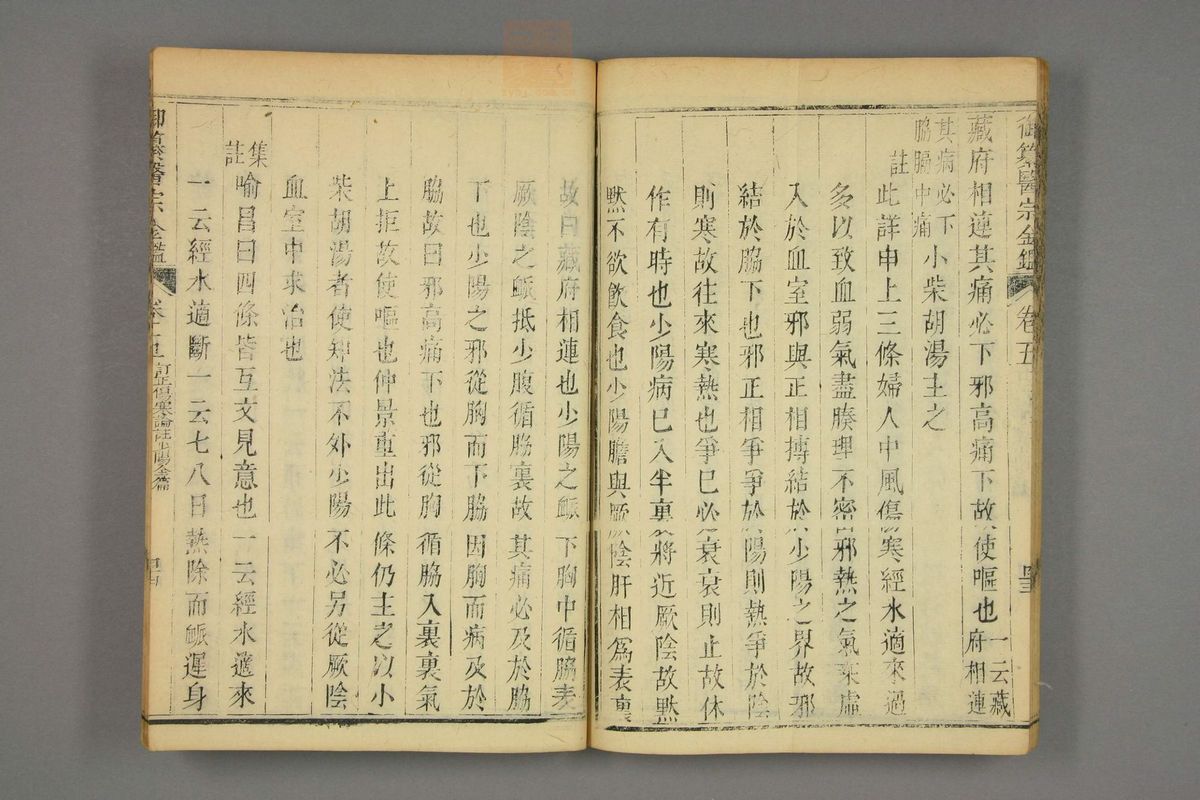 御纂醫宗金鑑 卷五
藏府相連其痛必下邪高痛下故使嘔也一云藏府相連
其病必下脇膈中痛小柴胡湯主之
註此詳申上三條婦人中風傷寒經水適來過
多以致血弱氣盡腠理不密邪熱之氣乘虛
入於血室邪與正相搏結於少陽之界故邪
結於脇下也邪正相爭爭於陽則熱爭於陰
則寒故往來寒熱也爭已必衰衰則止故休
作有時也少陽病已入半裏將近厥陰故默
默不欲飲食也少陽膽與厥陰肝相爲表裏
故曰藏府相連也少陽之脈下胸中循脇表
厥陰之脈抵少腹循脇裏故其痛必及於脇
下也少陽之邪從胸而下脇因胸而病及於
脇故曰邪高痛下也邪從胸循脇入裏裏氣
上拒故使嘔也仲景重出此條仍主之以小
柴胡湯者使知法不外少陽不必另從厥陰
血室中求治也
集註喻昌曰四條皆互文見意也一云經水適來
一云經水適斷一云七八日熱除而脈遲身
御纂醫宗金鑑 訂正傷寒論註少陽全篇